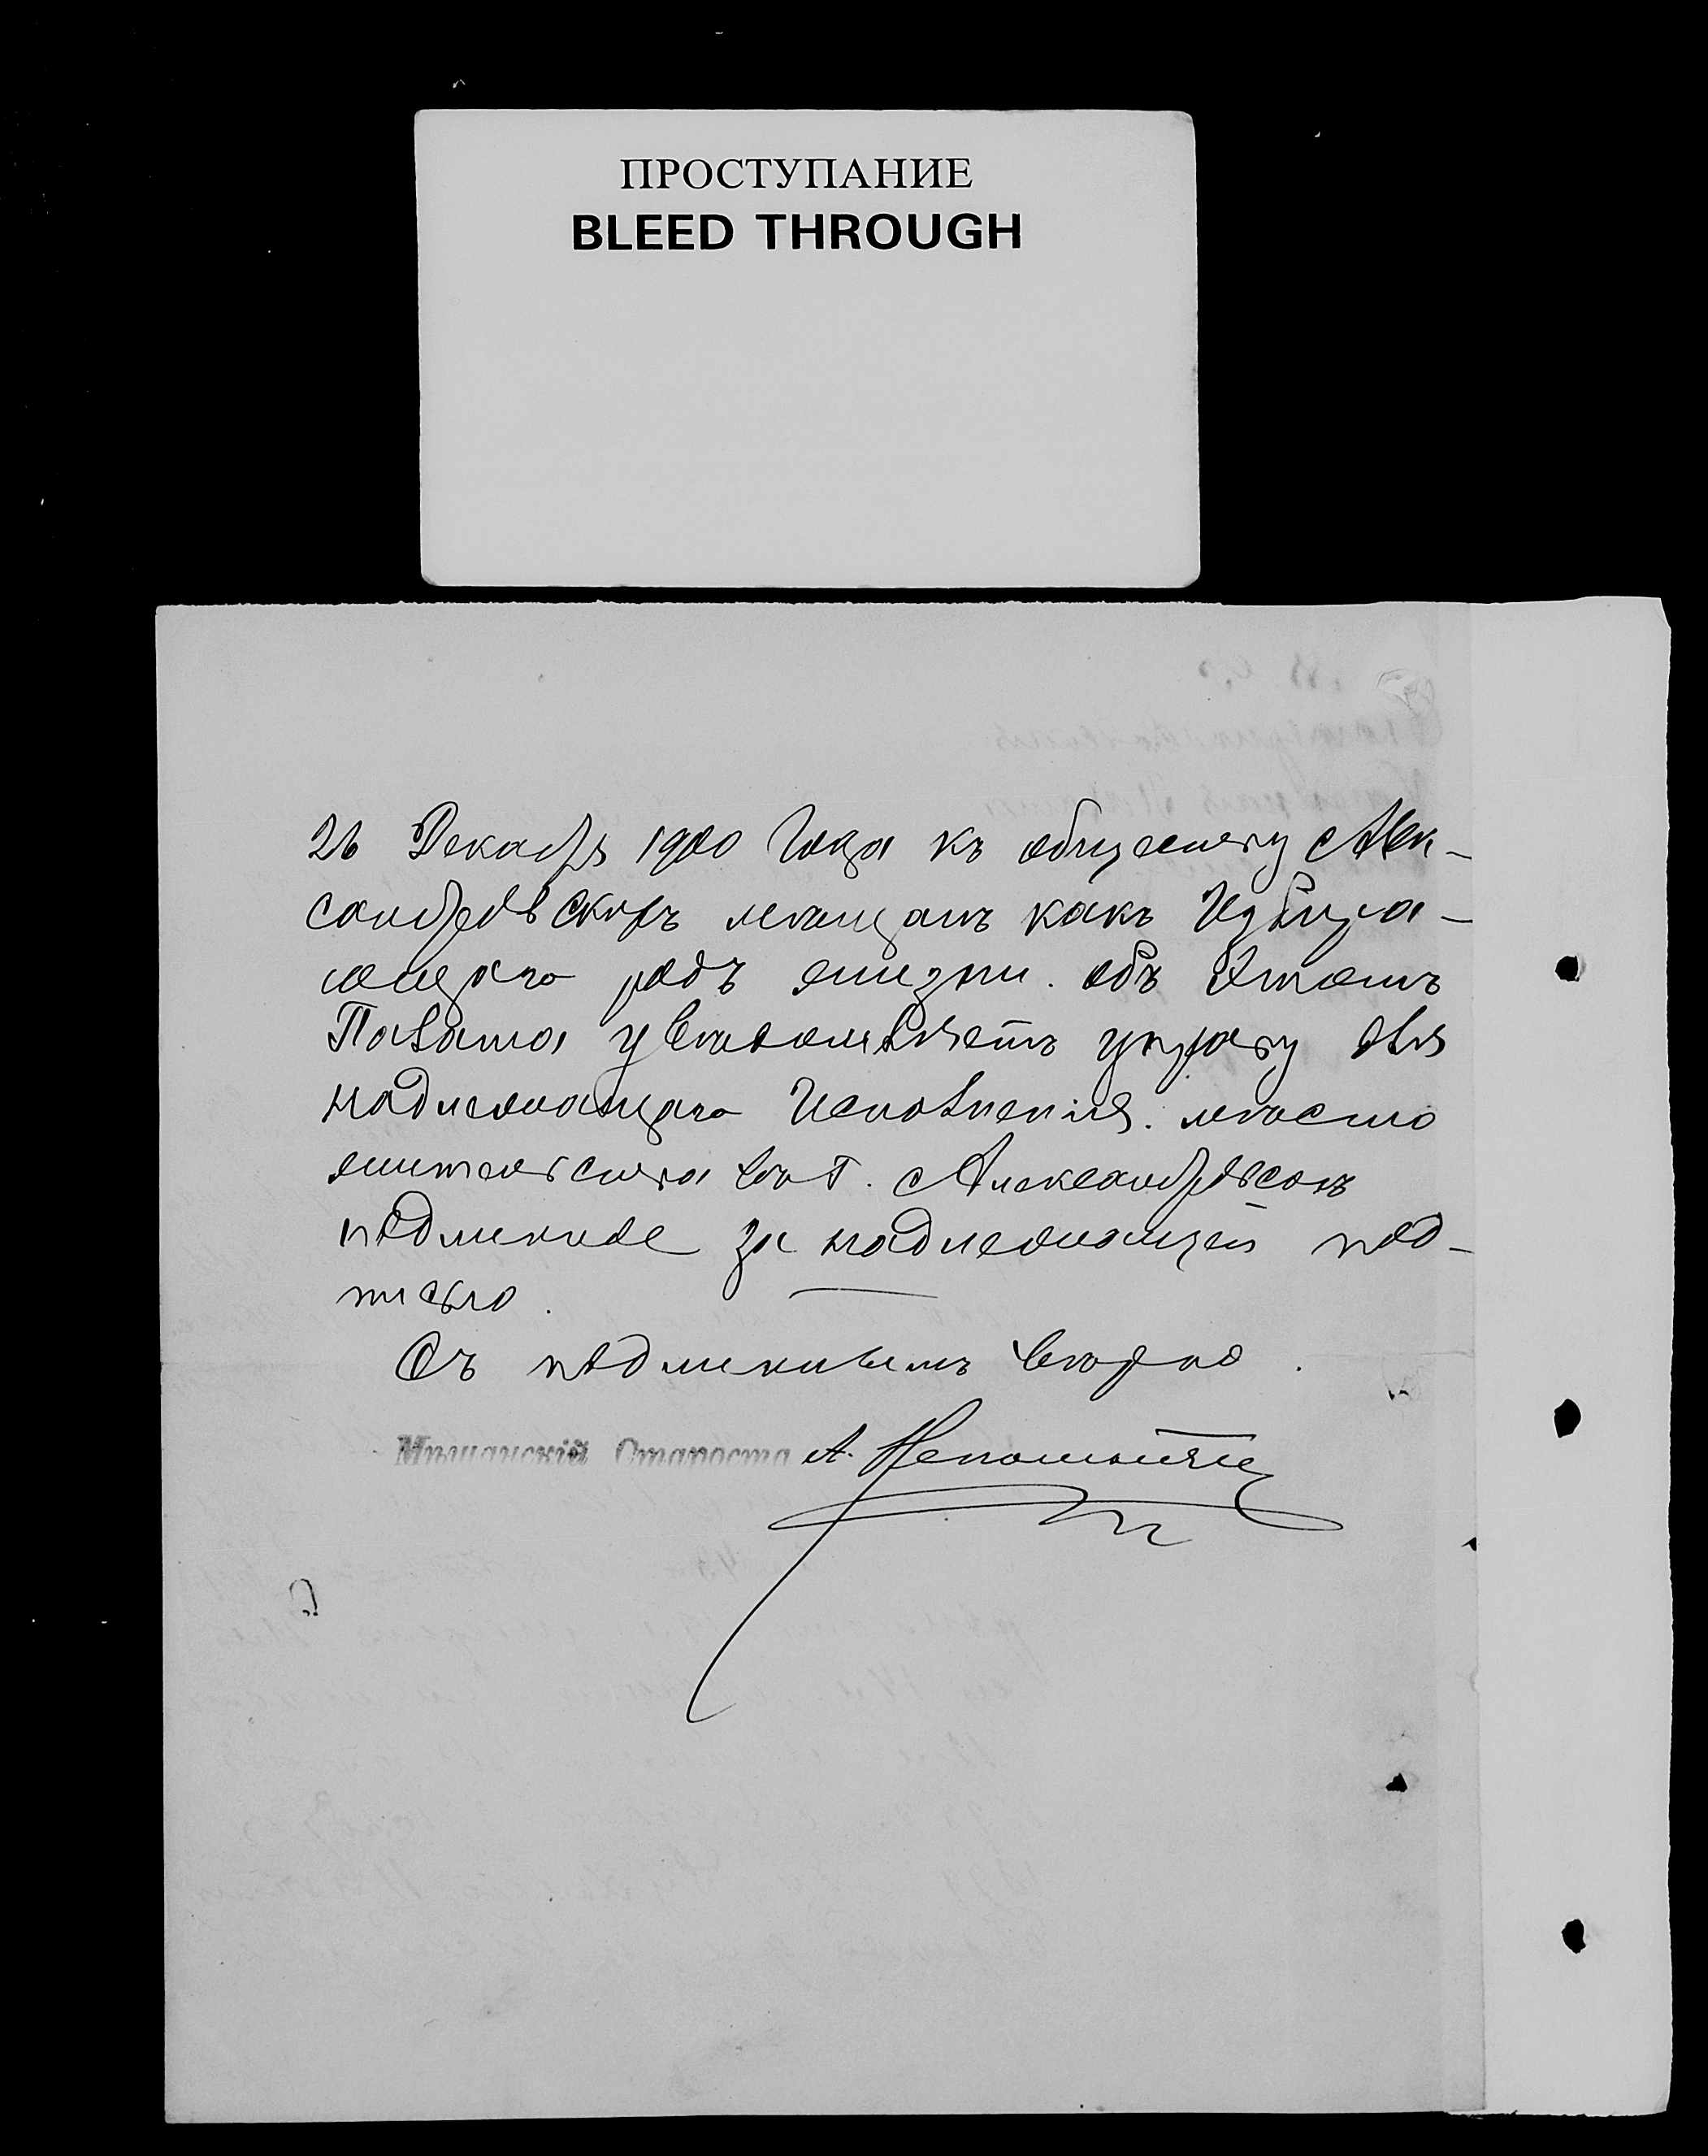 ПРОСТУПАНИЕ
BLEED THROUGH
26 Декабря 1900 года къ обществу Алек-
сандровскихъ мещанъ какъ Избира-
ющаго родъ жизни. объ Этомъ
Палата уведомляетъ управу для
надлежащаго Исполнения. место
жительства въ г. Александровскъ
подлинное за надлежащей под-
писью.
Съ подлиннымъ верно.
Мѣщанскій Староста А. Непомнящ